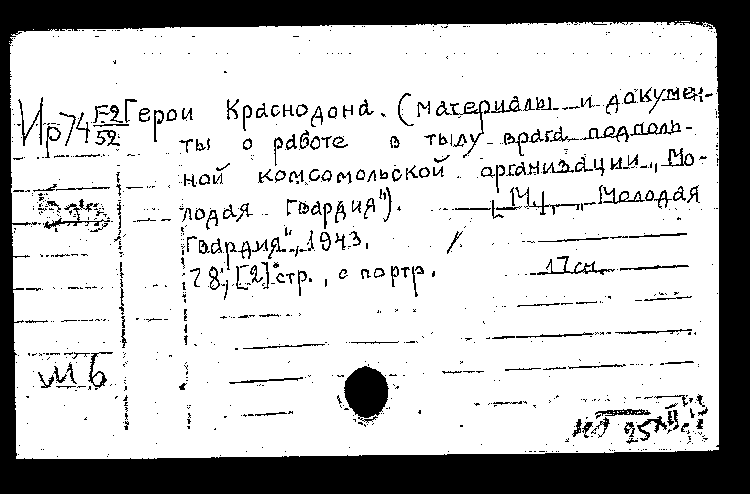 Ир74 F2/52 Герои Краснодона. (материалы и докумен-
ты о работе в тылу врага подполь-
ной комсомольской организации „Мо-
лодая Гвардия“). [М.], „Молодая
Гвардия“, 1943.
78, [2] стр., с портр. 17 см.
М б
25